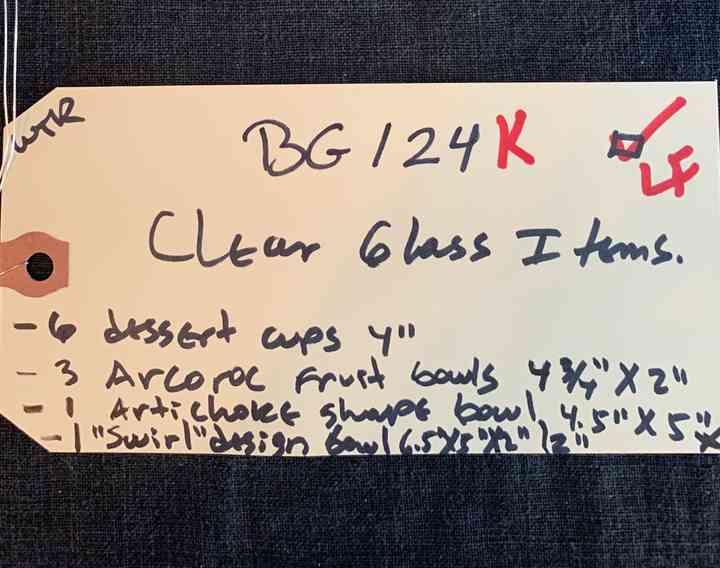 WTR
BG124K LF
Clear Glass Items.
- 6 dessert cups 4"
- 3 Arcoroc Fruit bowls 4 3/4" X 2"
- 1 Artichoke shape bowl 4.5" X 5" X
- 1 "Swirl" design bowl 6.5"X5"X2" 1/2"